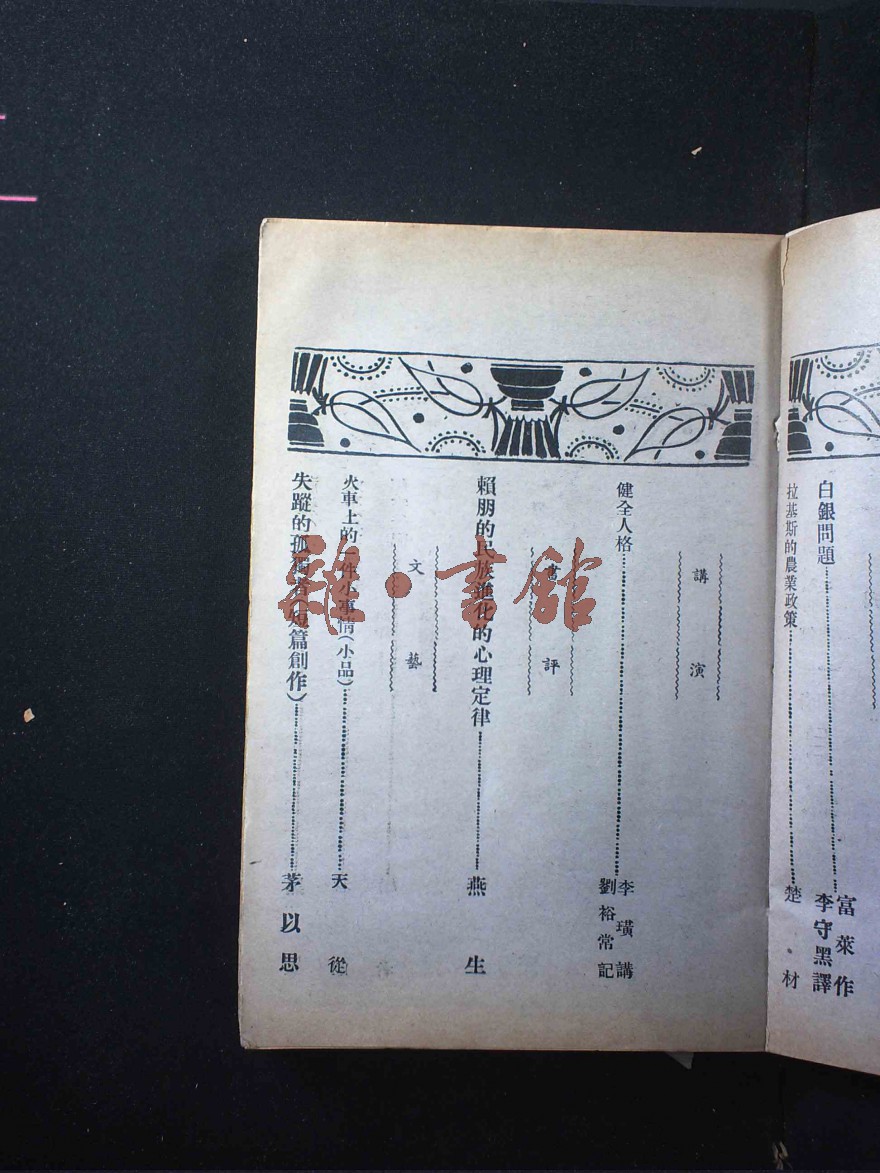 白銀問題……富萊作
李守黑譯
拉基斯的農業政策……楚材
講演
健全人格……李璜講
劉裕常記
書評
賴朋的民族進化的心理定律……燕生
文藝
火車上的一件小事情(小品)……天從
失蹤的孤獨者(短篇創作)……茅以思
雜·書館